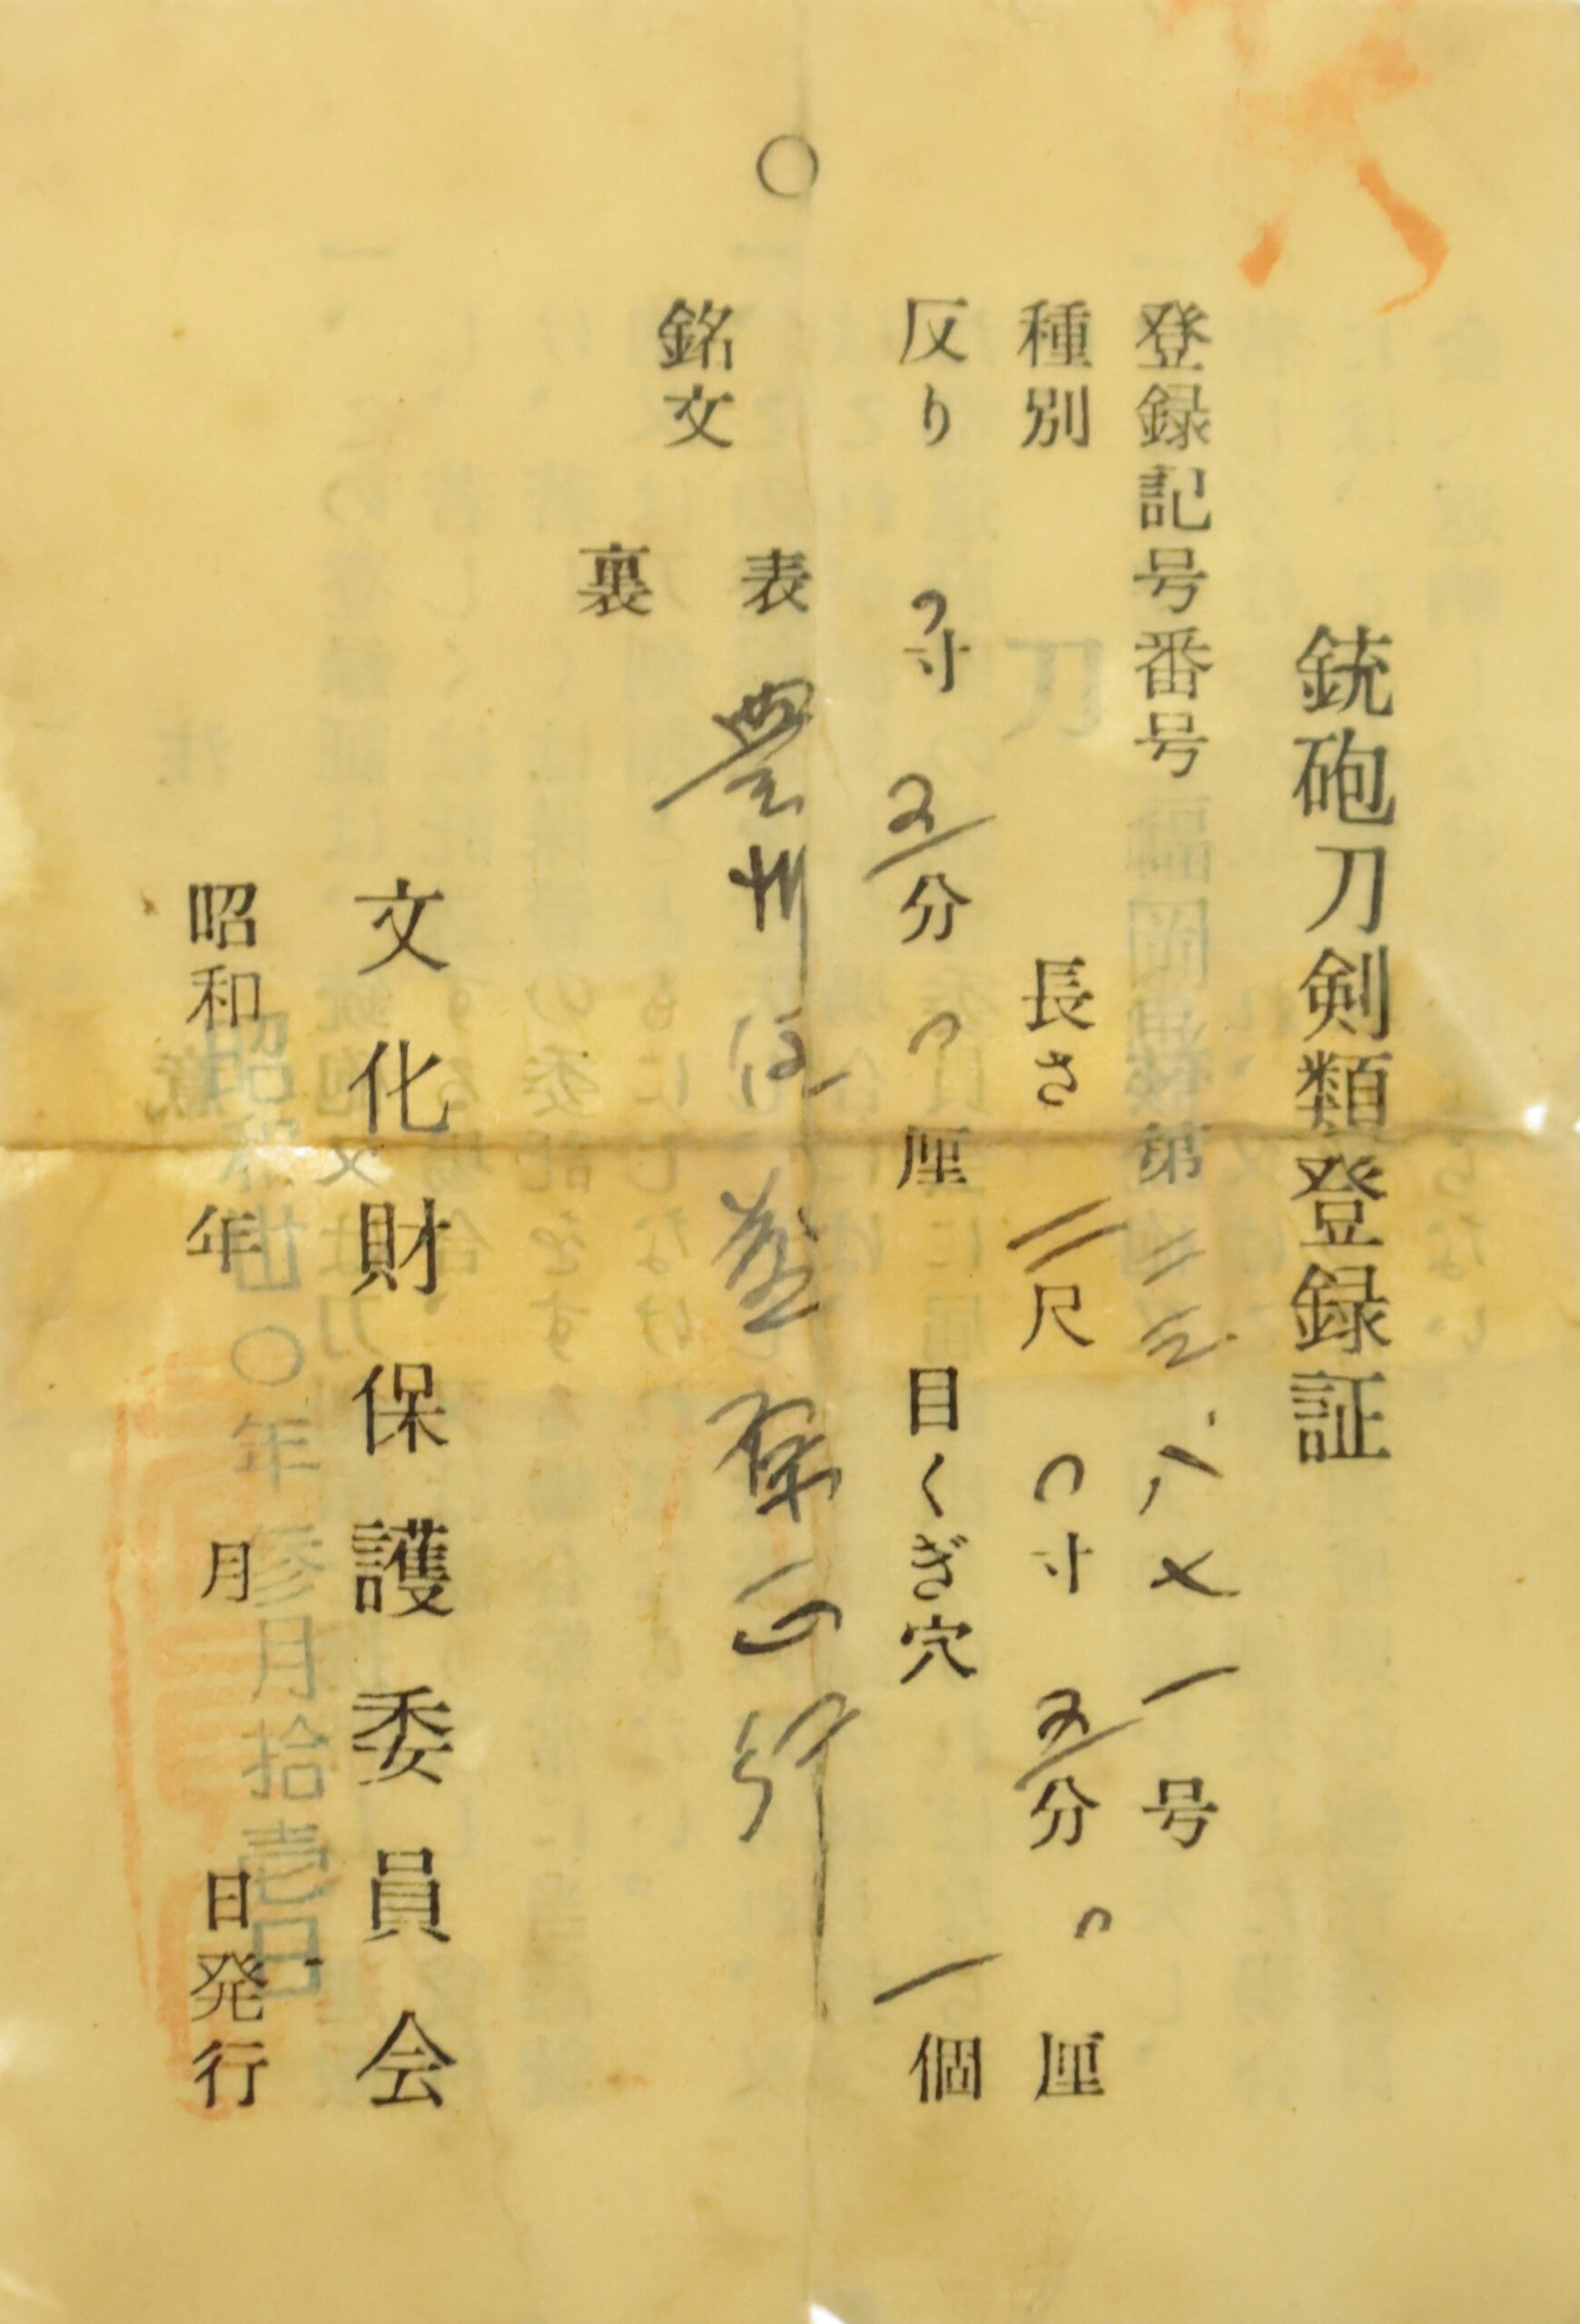 銃砲刀剣類登録証
登録記号番号 福岡県第二三八七一号
種別 刀 長さ 二尺〇寸五分〇厘
反り 〇寸五分〇厘 目くぎ穴 一個
銘文
表 豊州住藤原 行
裏
文化財保護委員会
昭和 年 月 日発行
昭和 〇年参月拾壱日